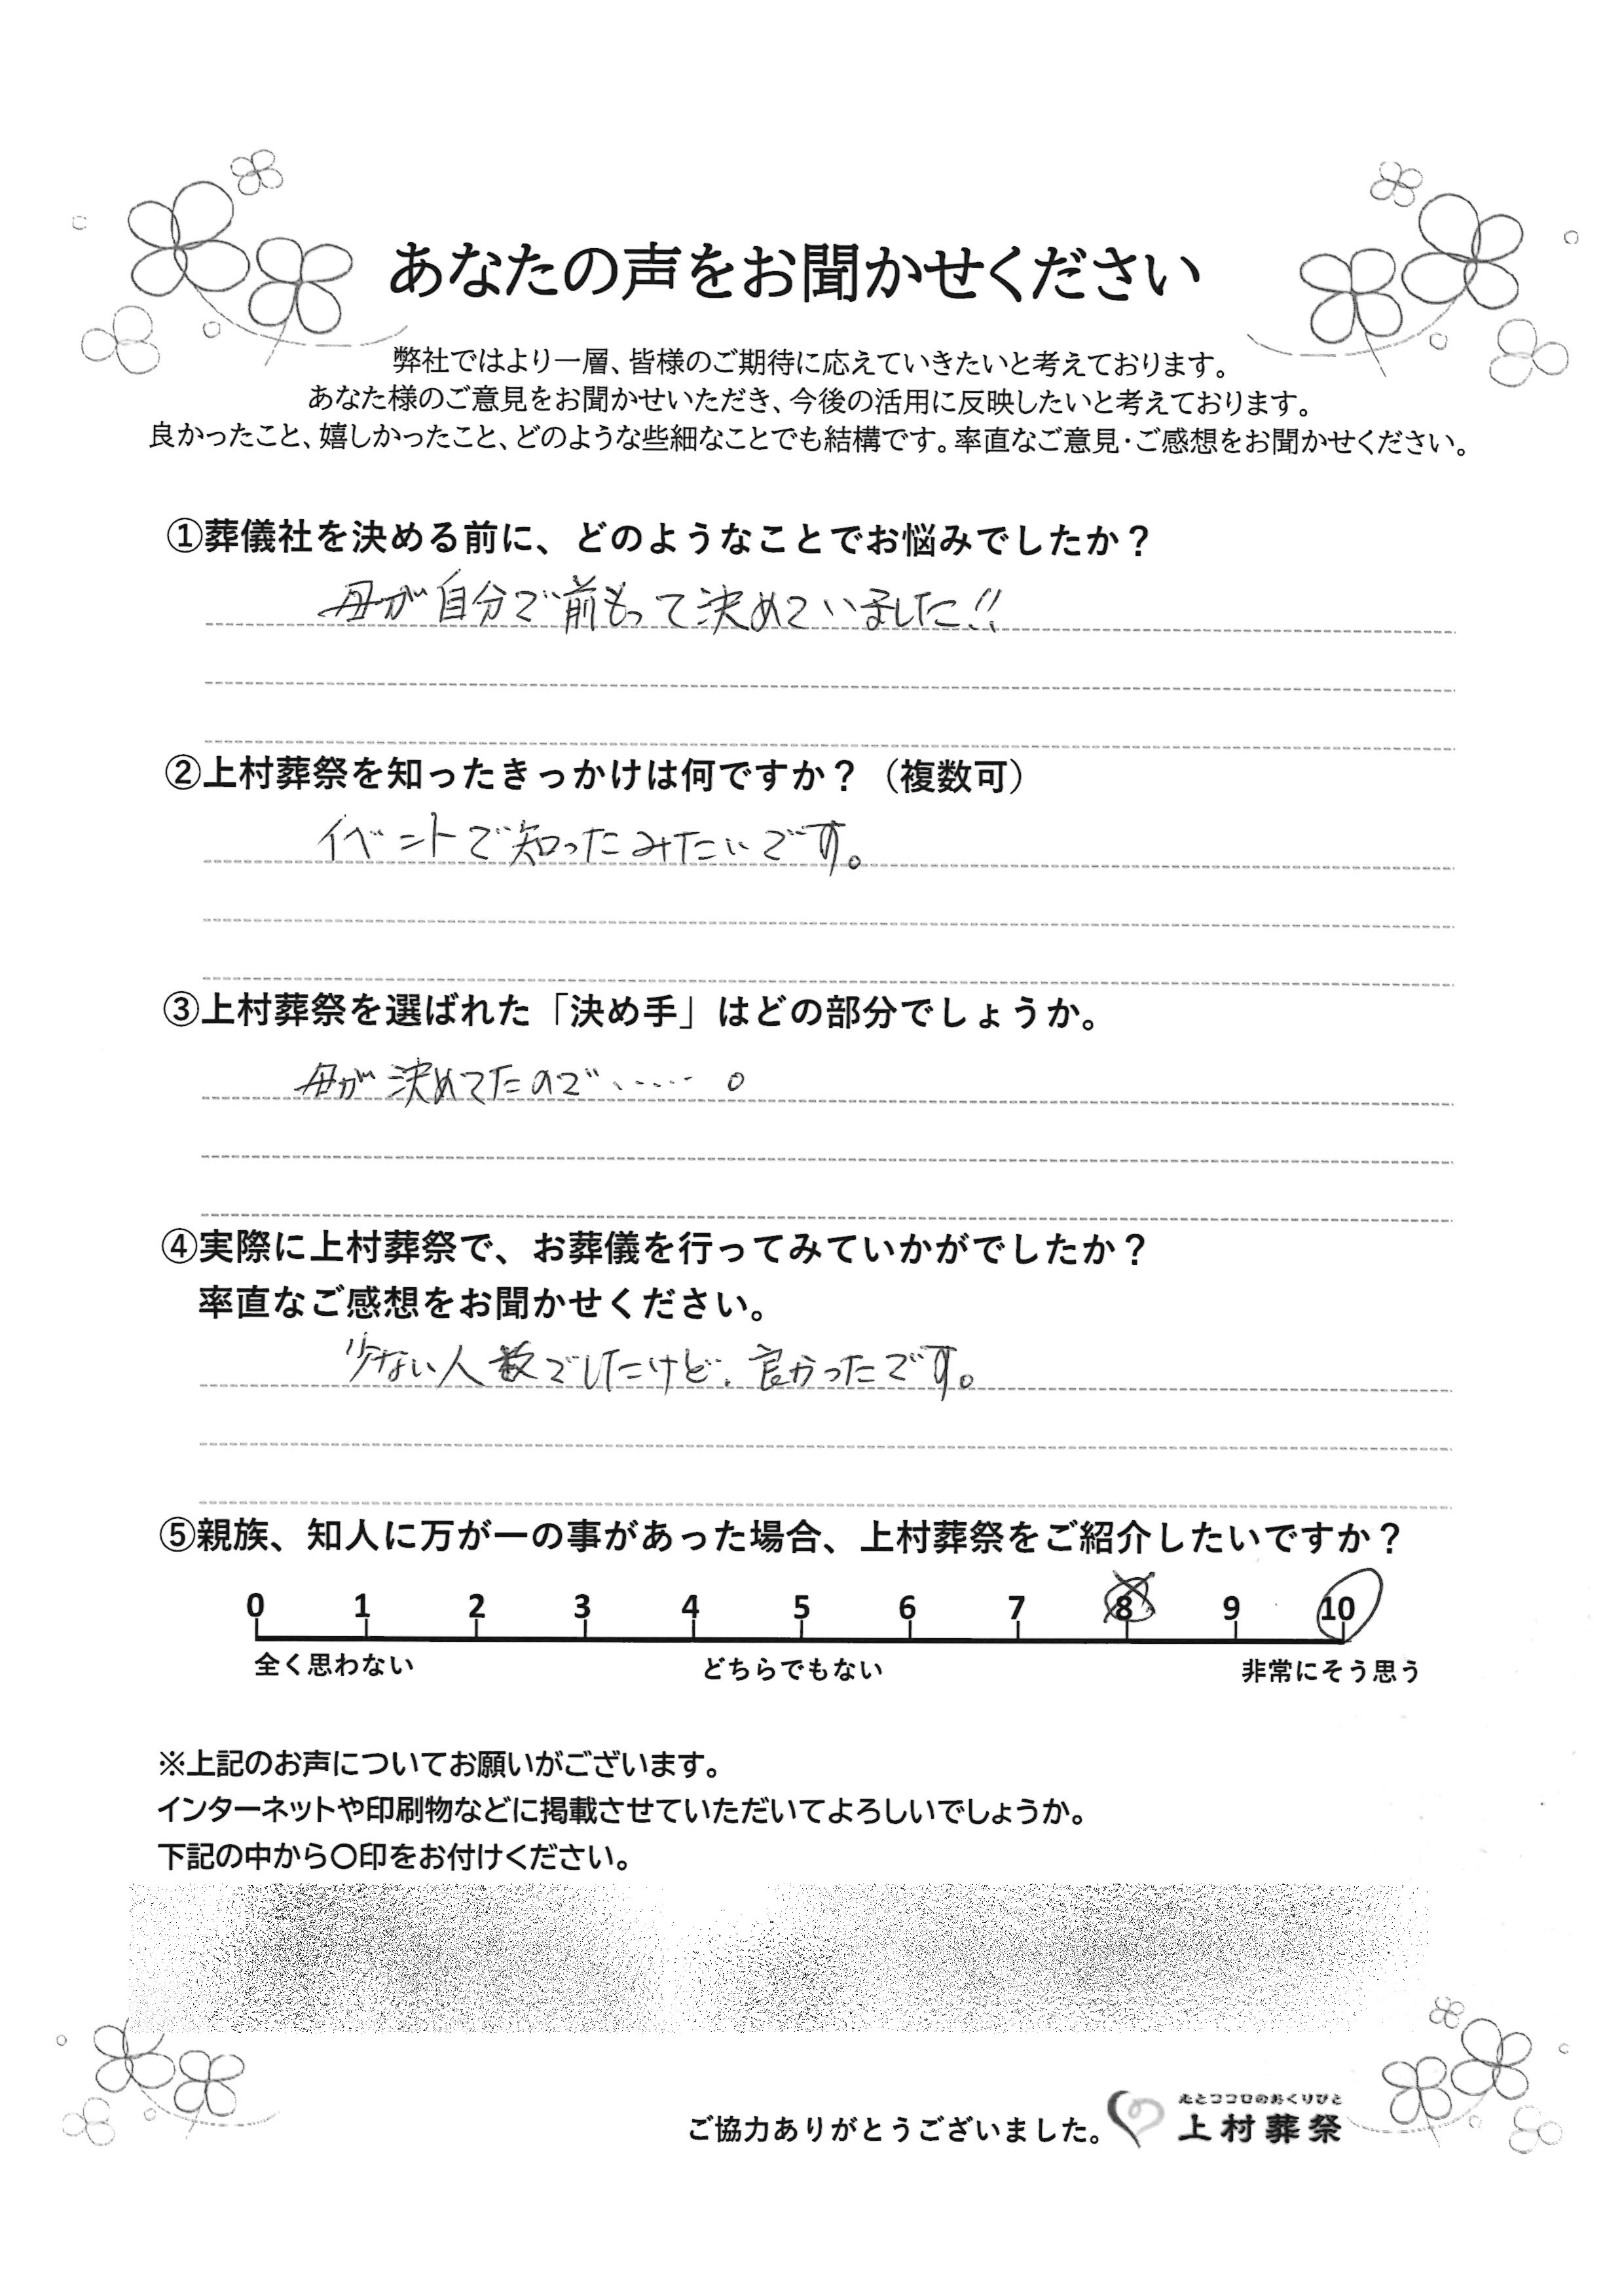 あなたの声をお聞かせください
弊社ではより一層、皆様のご期待に応えていきたいと考えております。
あなた様のご意見をお聞かせいただき、今後の活用に反映したいと考えております。
良かったこと、嬉しかったこと、どのような些細なことでも結構です。率直なご意見・ご感想をお聞かせください。
①葬儀社を決める前に、どのようなことでお悩みでしたか？
母が自分で前もって決めていました!!
②上村葬祭を知ったきっかけは何ですか？（複数可）
イベントで知ったみたいです。
③上村葬祭を選ばれた「決め手」はどの部分でしょうか。
母が決めてたので……。
④実際に上村葬祭で、お葬儀を行ってみていかがでしたか？
率直なご感想をお聞かせください。
少ない人数でしたけど、良かったです。
⑤親族、知人に万が一の事があった場合、上村葬祭をご紹介したいですか？
0 1 2 3 4 5 6 7 8 9 10
全く思わない どちらでもない 非常にそう思う
※上記のお声についてお願いがございます。
インターネットや印刷物などに掲載させていただいてよろしいでしょうか。
下記の中から〇印をお付けください。
心とココロのおくりびと
ご協力ありがとうございました。 上村葬祭